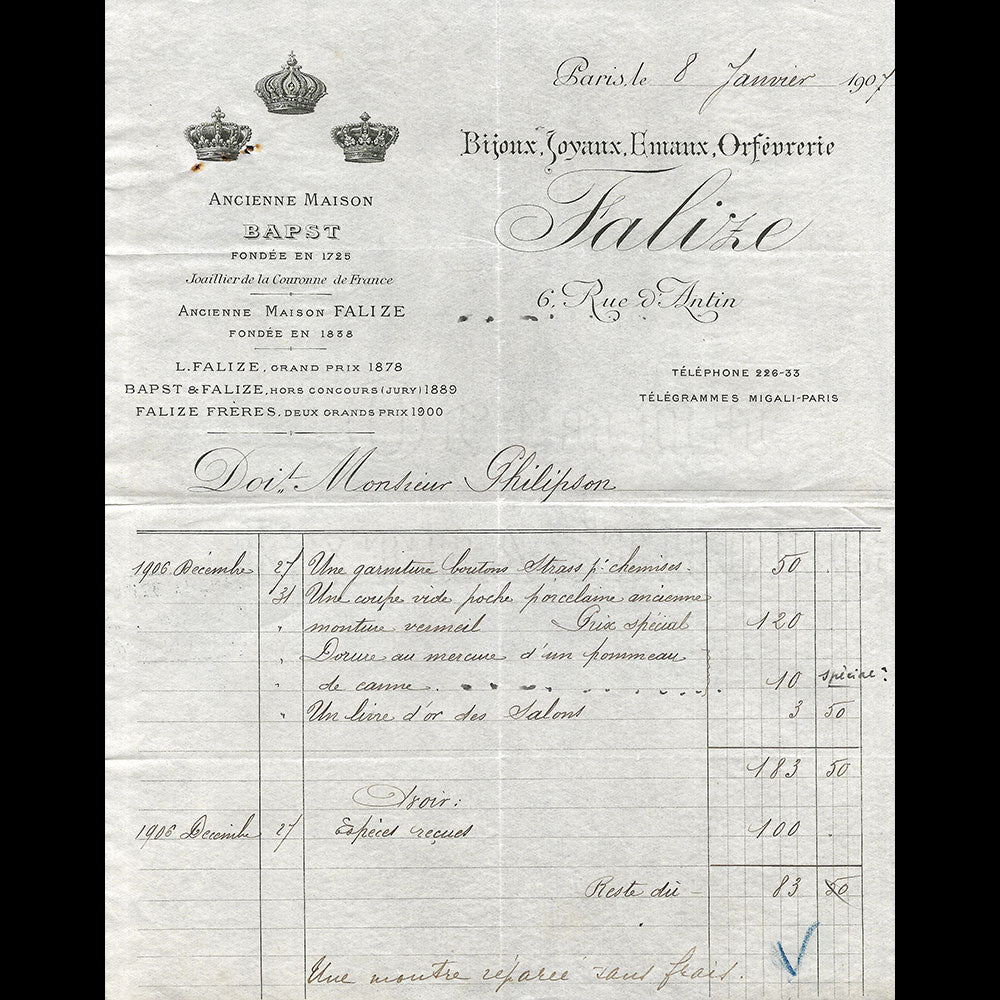 Paris, le 8 Janvier 1907
Bijoux, Joyaux, Emaux, Orfèvrerie
Falize
6, Rue d'Antin
TÉLÉPHONE 226-33
TÉLÉGRAMMES MIGALI-PARIS
ANCIENNE MAISON
BAPST
FONDÉE EN 1725
Joaillier de la Couronne de France
ANCIENNE MAISON FALIZE
FONDÉE EN 1838
L. FALIZE, GRAND PRIX 1878
BAPST & FALIZE, HORS CONCOURS (JURY) 1889
FALIZE FRÈRES, DEUX GRANDS PRIX 1900
Doit Monsieur Philipson
1906 Décembre 27 Une garniture boutons Strass pr chemises. 50
31 Une coupe vide poche porcelaine ancienne
" monture vermeil Prix spécial 120
" Dorure au mercure d'un pommeau
de canne. 10 spécial
" Un livre d'or des Salons 3 50
183 50
Avoir:
1906 Décembre 27 Espèces reçues 100
Reste dû - 83 50
Une montre réparée sans frais.